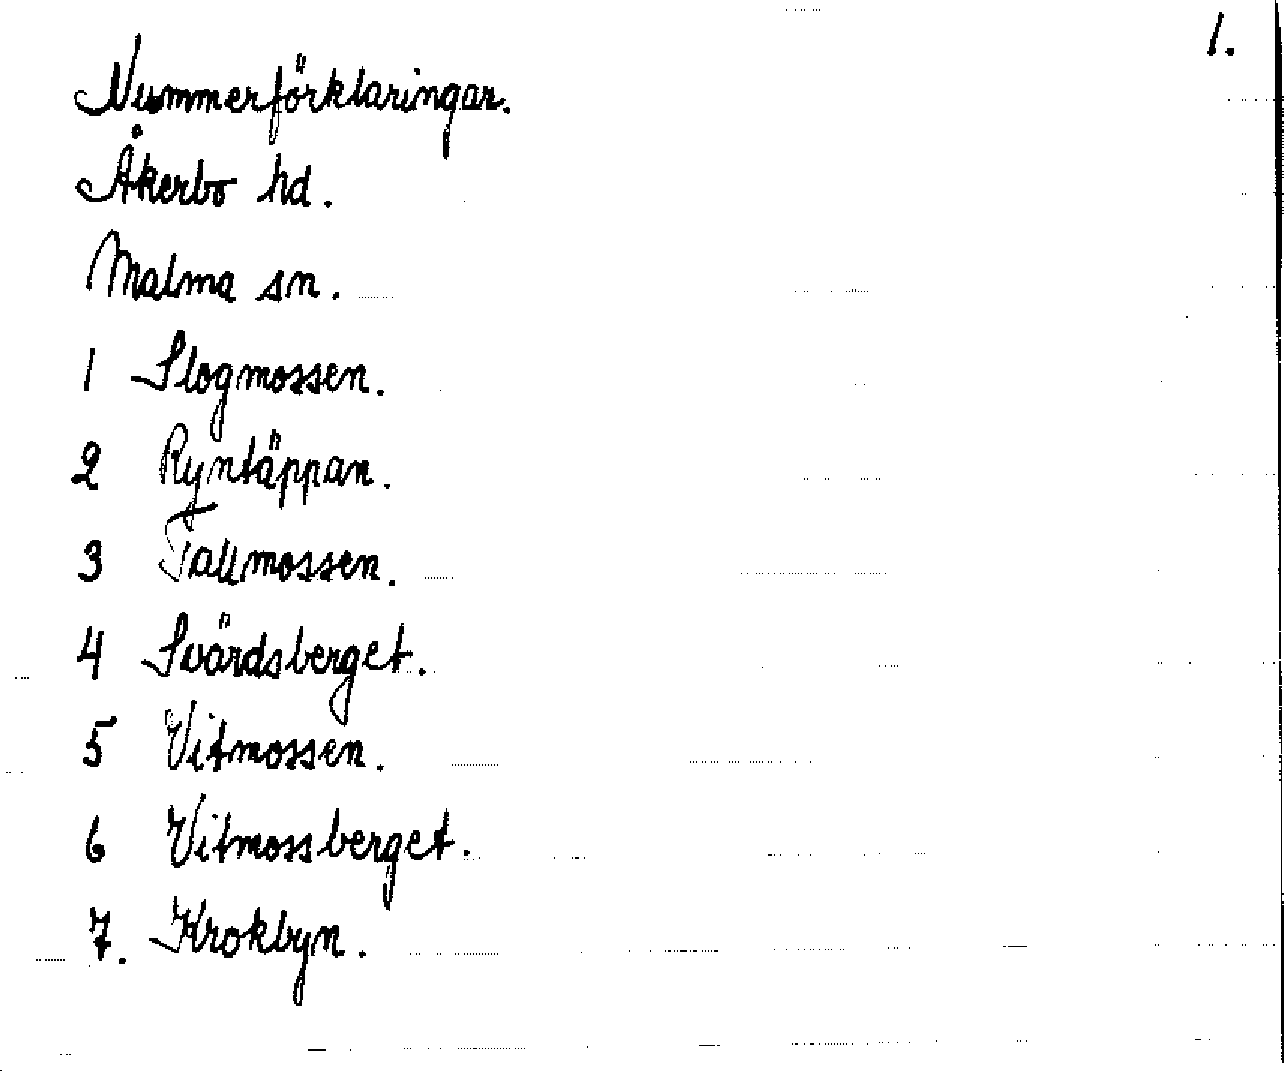 1.
Nummerförklaringar.
Åkerbo hd.
Malma sn.
1 Slogmossen.
2 Ryntäppan.
3 Tallmossen.
4 Svärdsberget.
5 Vitmossen.
6 Vitmossberget.
7. Krokbyn.